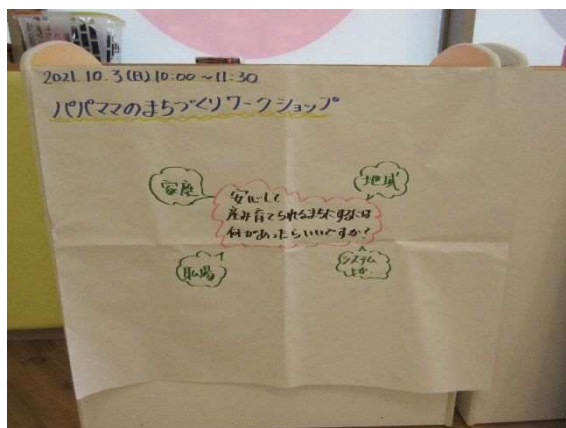 2021.10.3(日)10:00〜11:30
パパママのまちづくりワークショップ
家庭
地域
安心して
産み育てられるまちにするには
何があったらいいですか?
職場
システム
とか